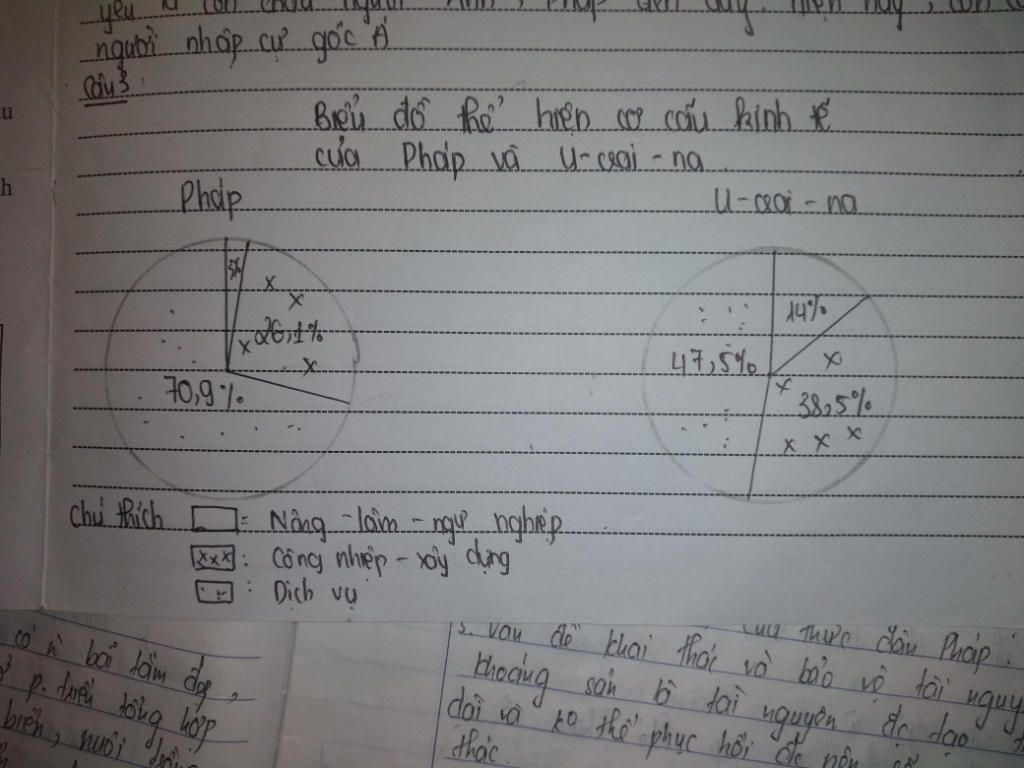 yếu là con cháu người Anh, Pháp đến đây. Hiện nay, còn có
người nhập cư gốc Á
Câu 3:
Biểu đồ thể hiện cơ cấu kinh tế
của Pháp và U-crai-na
Pháp
U-crai-na
3%
26,1%
70,9%
14%
47,5%
38,5%
Chú thích = Nông - lâm - ngư nghiệp
: Công nhiệp - xây dựng
: Dịch vụ
có bãi tắm đẹp,
p. triển tổng hợp
biển, nuôi trồng
3. Vấn đề khai thác và bảo vệ tài nguy
thực dân Pháp.
khoáng sản là tài nguyên đc tạo
dài và ko thể phục hồi đc nên
thác
u
h